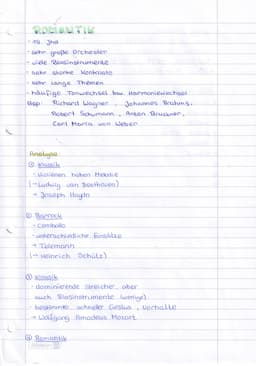 ROMANTIK
- 19. Jhd
- sehr große Orchester
- viele Blasinstrumente
- sehr starke Kontraste
- sehr lange Themen
- häufige Tonwechsel bzw. Harmoniewechsel
Bsp: Richard Wagner, Johannes Brahms,
Robert Schumann, Anton Bruckner,
Carl Maria von Weber
Analyse:
① Klassik
- Violinen haben Melodie
(→ Ludwig van Beethoven)
→ Joseph Haydn
② Barock
- Cembalo
- unterschiedliche Einsätze
→ Telemann
(→ Heinrich Schütz)
③ Klassik
- dominierende Streicher, aber
auch Blasinstrumente (wenige)
- bestimmte, schneller Gestus, Vorhalte
→ Wolfgang Amadeus Mozart
④ Romantik